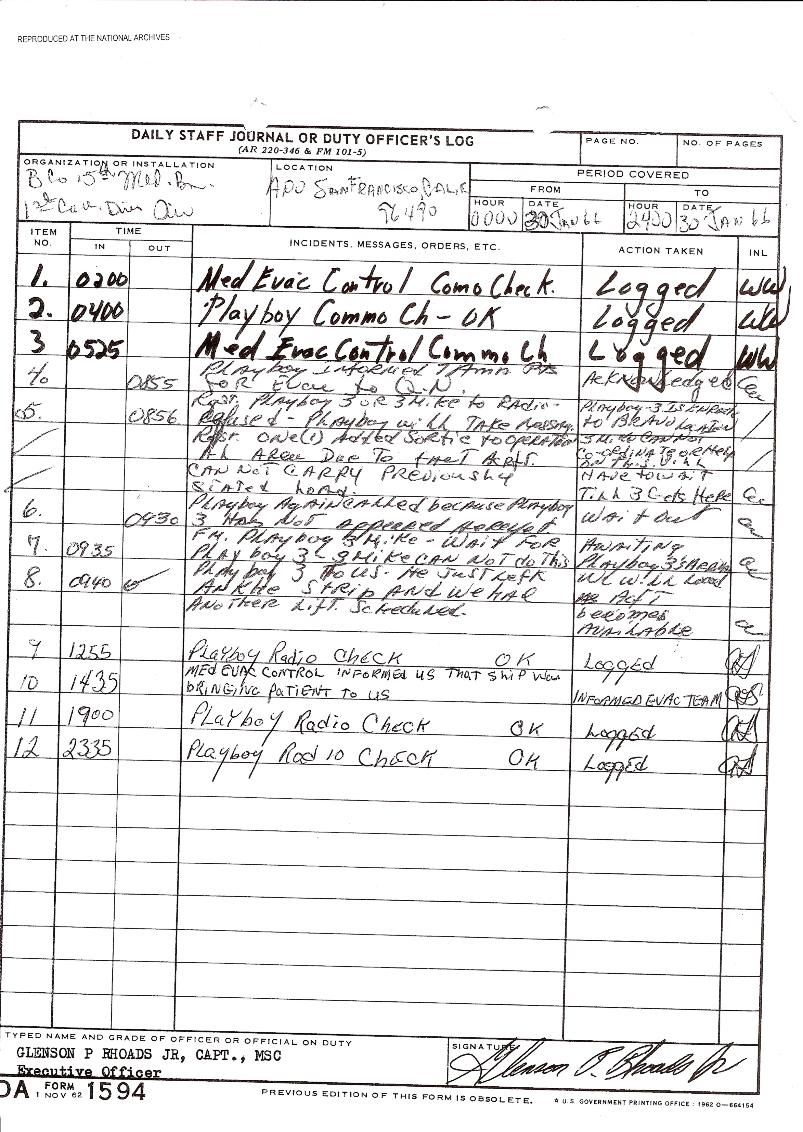 REPRODUCED AT THE NATIONAL ARCHIVES
DAILY STAFF JOURNAL OR DUTY OFFICER'S LOG
(AR 220-346 & FM 101-5)
PAGE NO.
NO. OF PAGES
ORGANIZATION OR INSTALLATION
B Co 15th Med. Bn.
1st Cav. Div
LOCATION
APO SanFrancisco, Calif
96490
PERIOD COVERED
FROM
TO
HOUR
DATE
HOUR
DATE
0000
30 Jan 66
2400
30 Jan 66
ITEM NO.
TIME
IN
OUT
INCIDENTS, MESSAGES, ORDERS, ETC.
ACTION TAKEN
INL
1. 0200 Med Evac Control Como Check. Logged WW
2. 0400 Playboy Commo Ch - OK Logged WW
3 0525 Med Evac Control Commo Ch Logged WW
4. Playboy informed
0855 For Evac to Q.N. Acknowledged
5. Rqst. Playboy 3 or 3 Mike to Radio- Playboy-3 Is Enroute
0856 Refused - Playboy will Take Message. to
Rqst. one(1) Added Sortie to operation 3 Mike CanNot
Area Due To Fact Acft. Co-ordinate or Help
Can Not Carry Previously Have to wait
Stated Load. Till 3 Gets Here
6. Playboy Again Called because Playboy
0930 3 Has Not Appeared Wait Out
7. 0935 Fm. Playboy 3 Mike - Wait For Awaiting
Playboy 3 3 Mike Can Not do This Playboy 3's
8. 0940 Playboy 3 To us - He Just Left We will
Ankhe Strip And we Had Acft
Another Lift Scheduled. becomes
Available
9 1255 Playboy Radio Check OK Logged
10 1435 Med Evac Control informed us that ship was
bringing patient to us Informed Evac Team
11 1900 Playboy Radio Check OK Logged
12 2335 Playboy Radio Check OK Logged
TYPED NAME AND GRADE OF OFFICER OR OFFICIAL ON DUTY
GLENSON P RHOADS JR, CAPT., MSC
Executive Officer
SIGNATURE
Glenson P. Rhoads Jr
DA FORM 1 NOV 62 1594
PREVIOUS EDITION OF THIS FORM IS OBSOLETE.
U.S. GOVERNMENT PRINTING OFFICE : 1962 O-664154